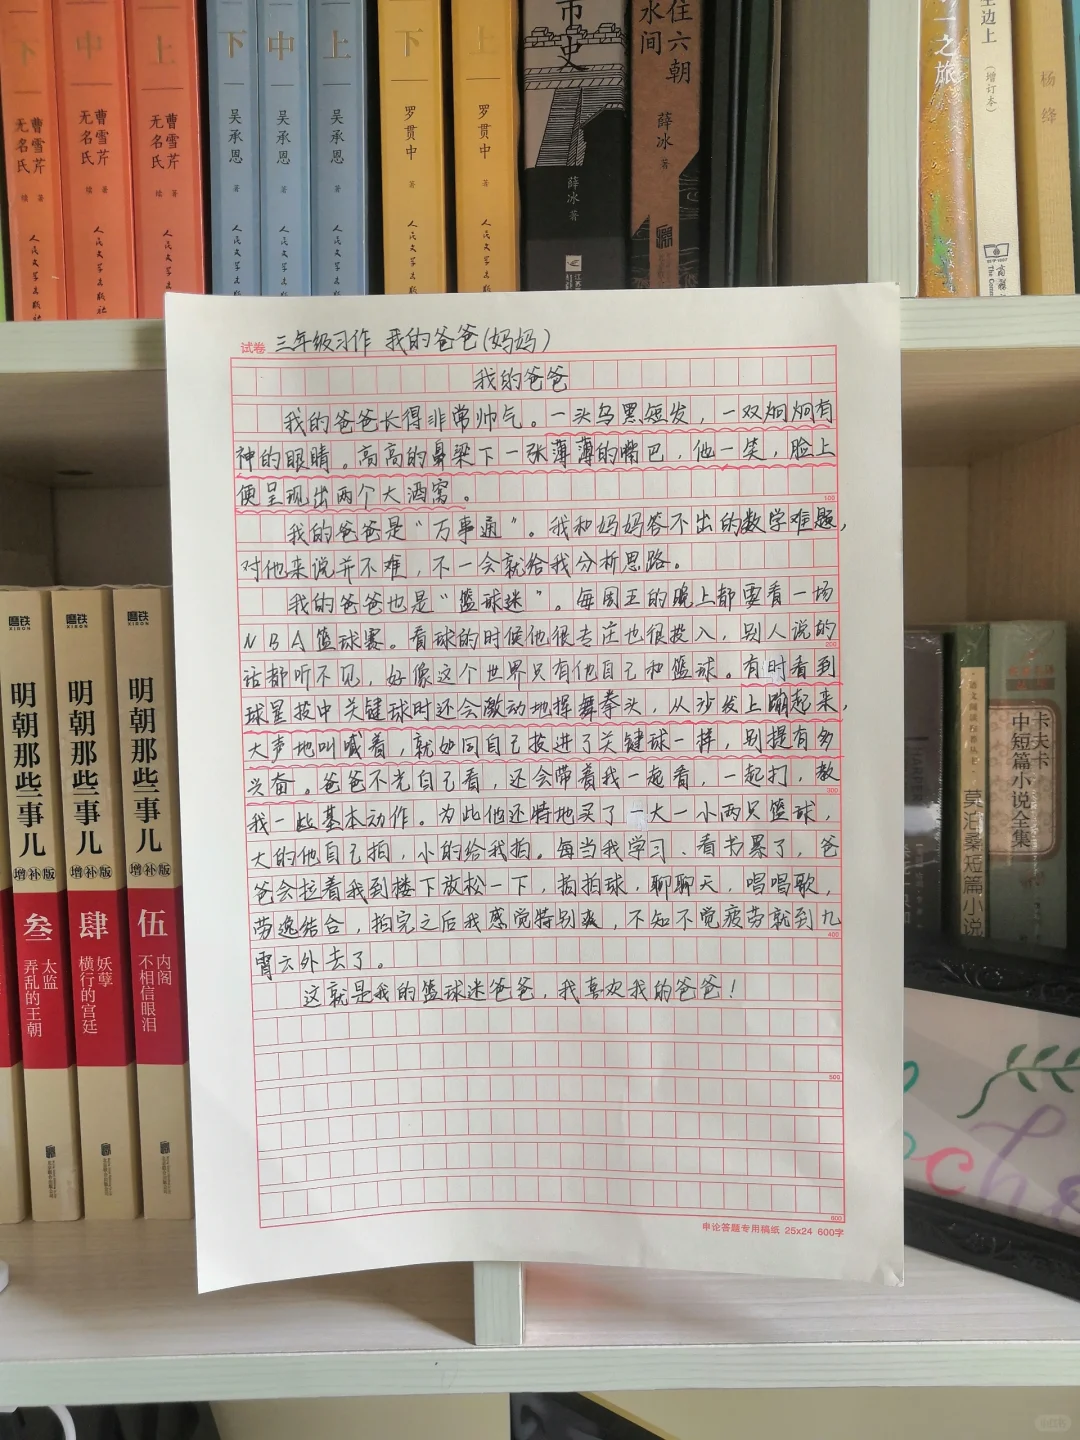 下
中
上
下
中
上
下
上
市史
住六朝
水间
一之旅
生边上
（增订本）
杨绛
曹雪芹
无名氏
续 著
曹雪芹
无名氏
续 著
曹雪芹
无名氏
续 著
吴承恩
著
吴承恩
著
吴承恩
著
罗贯中
著
罗贯中
著
薛冰 著
薛冰 著
人民文学出版社
人民文学出版社
人民文学出版社
人民文学出版社
人民文学出版社
人民文学出版社
人民文学出版社
人民文学出版社
试卷 三年级习作 我的爸爸(妈妈)
我的爸爸
我的爸爸长得非常帅气。一头乌黑短发，一双炯炯有
神的眼睛。高高的鼻梁下一张薄薄的嘴巴，他一笑，脸上
便呈现出两个大酒窝。
100
我的爸爸是“万事通”。我和妈妈答不出的数学难题，
对他来说并不难，不一会就给我分析思路。
我的爸爸也是“篮球迷”。每周五的晚上都要看一场
NBA篮球赛。看球的时候他很专注也很投入，别人说的
200
话都听不见，好像这个世界只有他自己和篮球。有时看到
球星投中关键球时还会激动地挥舞拳头，从沙发上蹦起来，
大声地叫喊着，就如同自己投进了关键球一样，别提有多
兴奋。爸爸不光自己看，还会带着我一起看，一起打，教
300
我一些基本动作。为此他还特地买了一大一小两只篮球，
大的他自己拍，小的给我拍。每当我学习、看书累了，爸
爸会拉着我到楼下放松一下，拍拍球，聊聊天，唱唱歌，
劳逸结合，拍完之后我感觉特别爽，不知不觉疲劳就到九
400
霄云外去了。
这就是我的篮球迷爸爸，我喜欢我的爸爸！
500
600
申论答题专用稿纸 25x24 600字
磨铁
明朝那些事儿
增补版
叁
太监
弄乱的王朝
磨铁
明朝那些事儿
增补版
肆
妖孽
横行的宫廷
磨铁
明朝那些事儿
增补版
伍
内阁
不相信眼泪
莫泊桑短篇小说
卡夫卡
中短篇小说全集